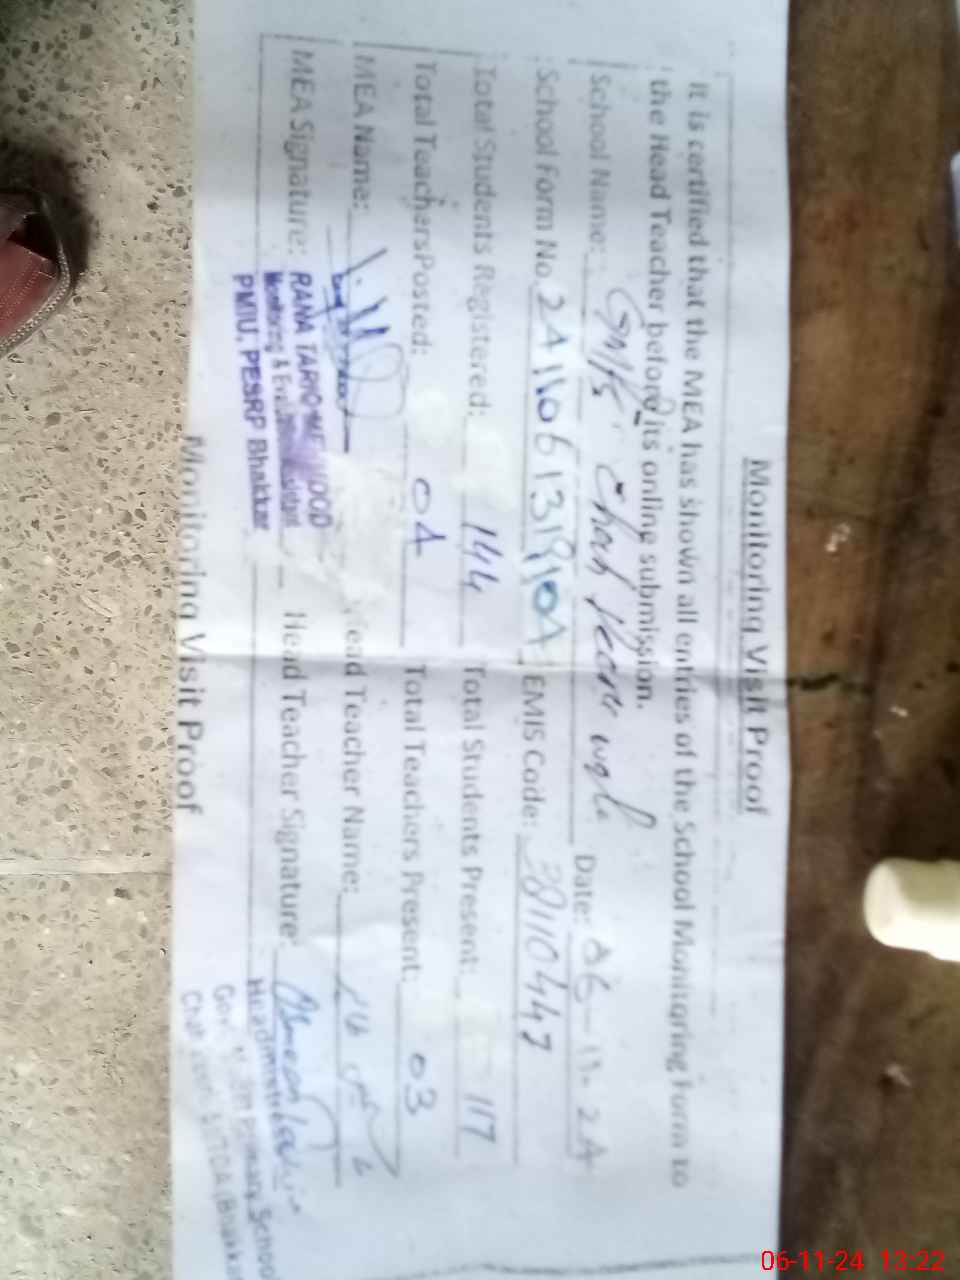 Monitoring Visit Proof
It is certified that the MEA has shown all entries of the School Monitoring Form to
the Head Teacher before its online submission.
School Name: Chah Date: 06-11-24
School Form No. EMIS Code: 38110447
Total Students Registered: 144 Total Students Present: 117
Total Teachers Posted: 04 Total Teachers Present: 03
MEA Name: Head Teacher Name:
MEA Signature: Head Teacher Signature:
RANA TARIQ
Monitoring &
PMIU, PESRP Bhakkar
Headmistress
Govt. Primary School
Chah (Bhakkar
Monitoring Visit Proof
06-11-24 13:22